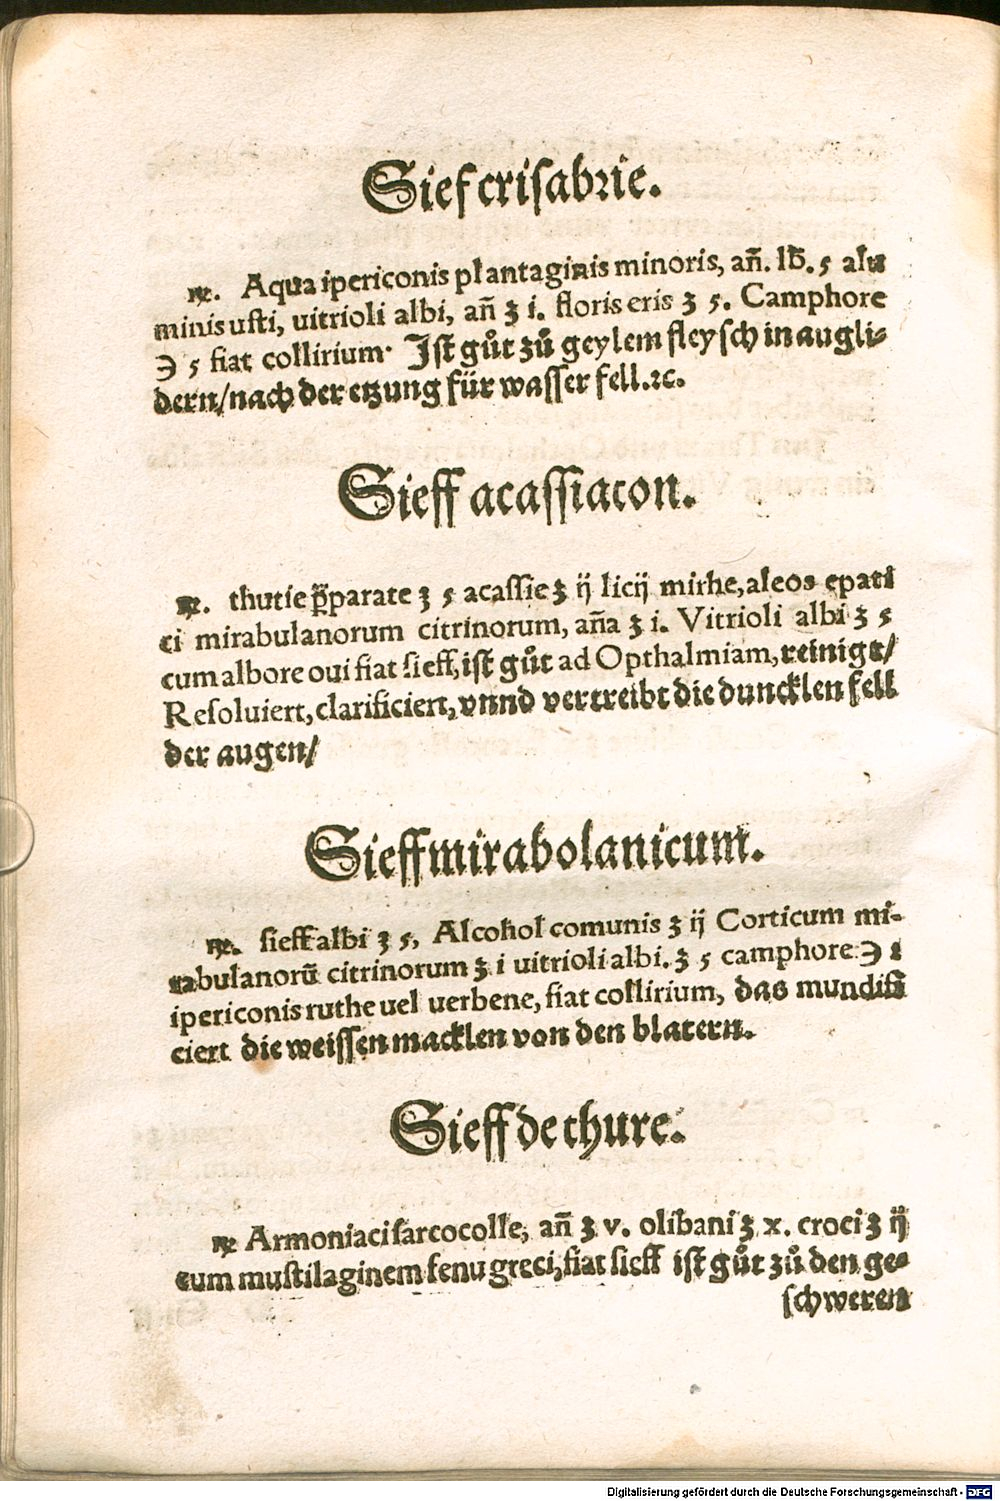 Sief crisabrie.
℞. Aqua ipericonis plantaginis minoris, an̄. lb̄. 5 alu
minis usti, uitrioli albi, an̄ ʒ i. floris eris ʒ 5. Camphore
℈ 5 fiat collirium· Jst gůt zů geylem fleysch in augli⸗
dern/nach der etzung für wasser fell.⁊c.
Sieff acassiacon.
℞. thutie p̈parate ʒ 5 acassie ʒ ij licij mirhe, aleos epati
ci mirabulanorum citrinorum, an̄a ʒ i. Vitrioli albi ʒ 5
cum albore oui fiat sieff, ist gůt ad Opthalmiam, reinigt/
Resoluiert, clarificiert, vnnd vertreibt die duncklen fell
der augen/
Sieff mirabolanicum.
℞. sieff albi ʒ 5, Alcohol comunis ʒ ij Corticum mi⸗
rabulanorū citrinorum ʒ i uitrioli albi. ʒ 5 camphore ℈ i
ipericonis ruthe uel uerbene, fiat collirium, das mundifi
ciert die weissen macklen von den blatern.
Sieff de thure.
℞ Armoniaci sarcocolle, an̄ ʒ v. olibani ʒ x. croci ʒ ij
cum mustilaginem fenu greci, fiat sieff ist gůt zů den ge⸗
schweren
Digitalisierung gefördert durch die Deutsche Forschungsgemeinschaft - DFG